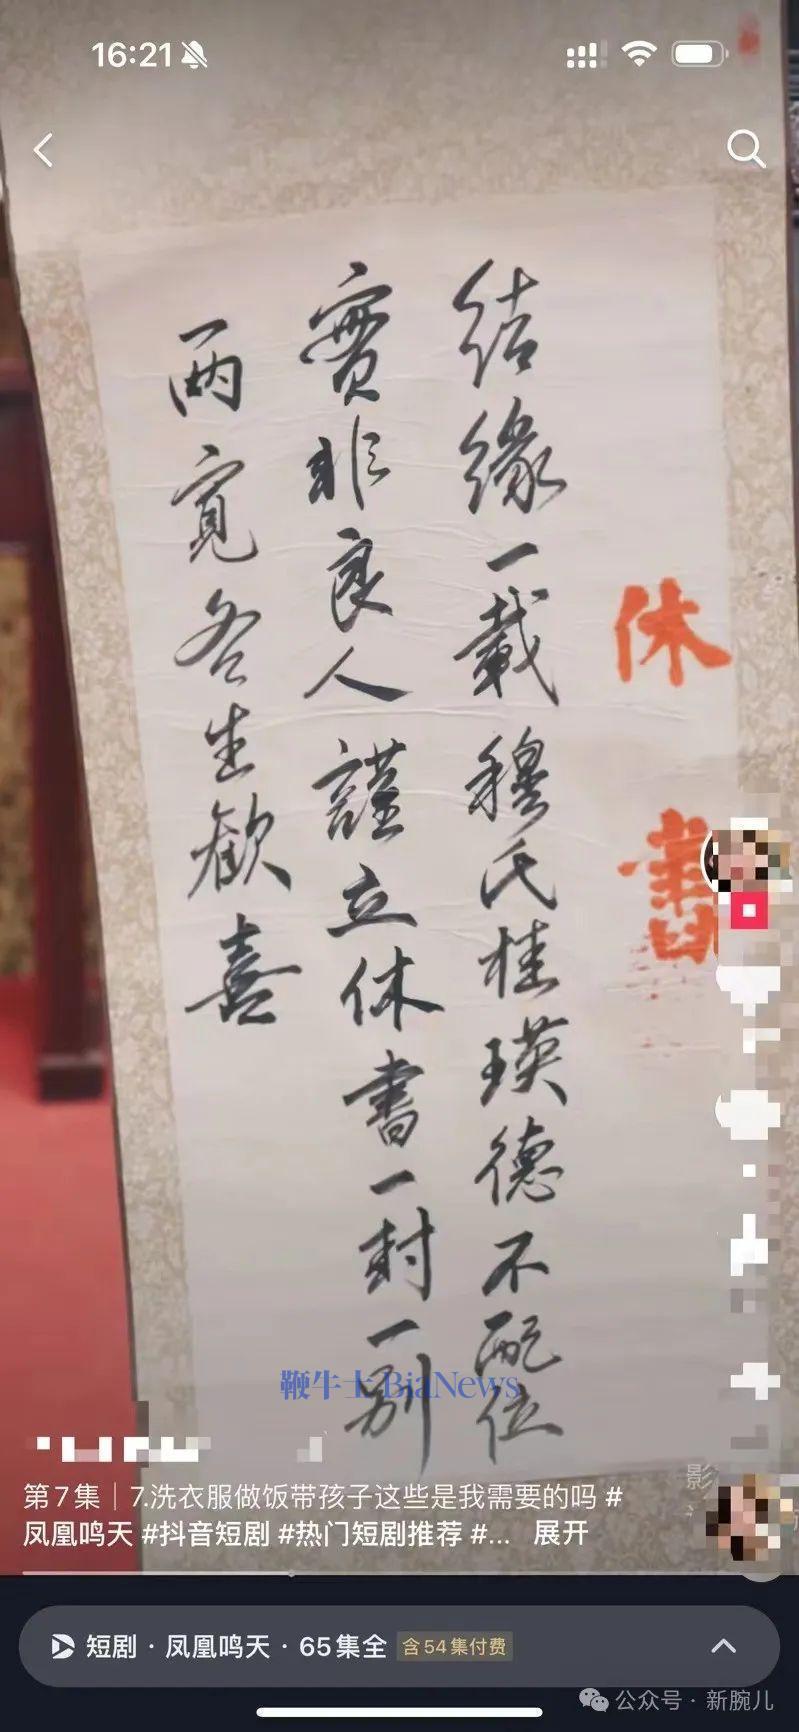 16:21
休書
结缘一載穆氏桂瑛德不配位
實非良人謹立休書一封一别
两寬各生歓喜
鞭牛士 BiaNews
影
第7集｜7.洗衣服做饭带孩子这些是我需要的吗 #
凤凰鸣天 #抖音短剧 #热门短剧推荐 #... 展开
短剧 · 凤凰鸣天 · 65集全 含54集付费
公众号 · 新腕儿